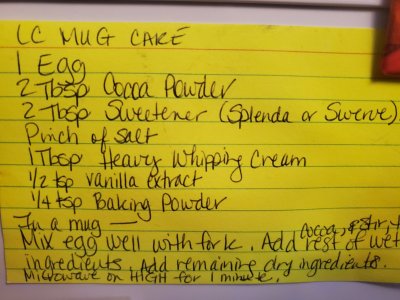 LC MUG CAKE
1 Egg
2 Tbsp Cocoa Powder
2 Tbsp Sweetener (Splenda or Swerve)
Pinch of salt
1 Tbsp Heavy Whipping Cream
1/2 tsp vanilla extract
1/4 tsp Baking Powder
In a mug —
Cocoa, stir,
Mix egg well with fork. Add rest of wet
ingredients. Add remaining dry ingredients.
Microwave on HIGH for 1 minute.